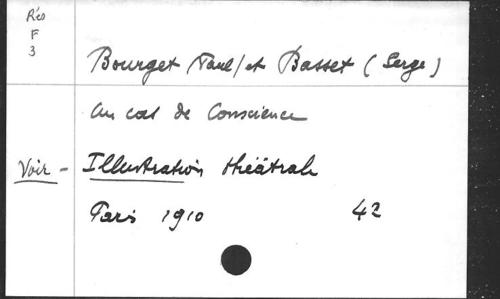 Rés
F
3
Bourget (Paul) et Basset (Serge)
Un cas de Conscience
Voir - Illustration théâtrale
Paris 1910 42